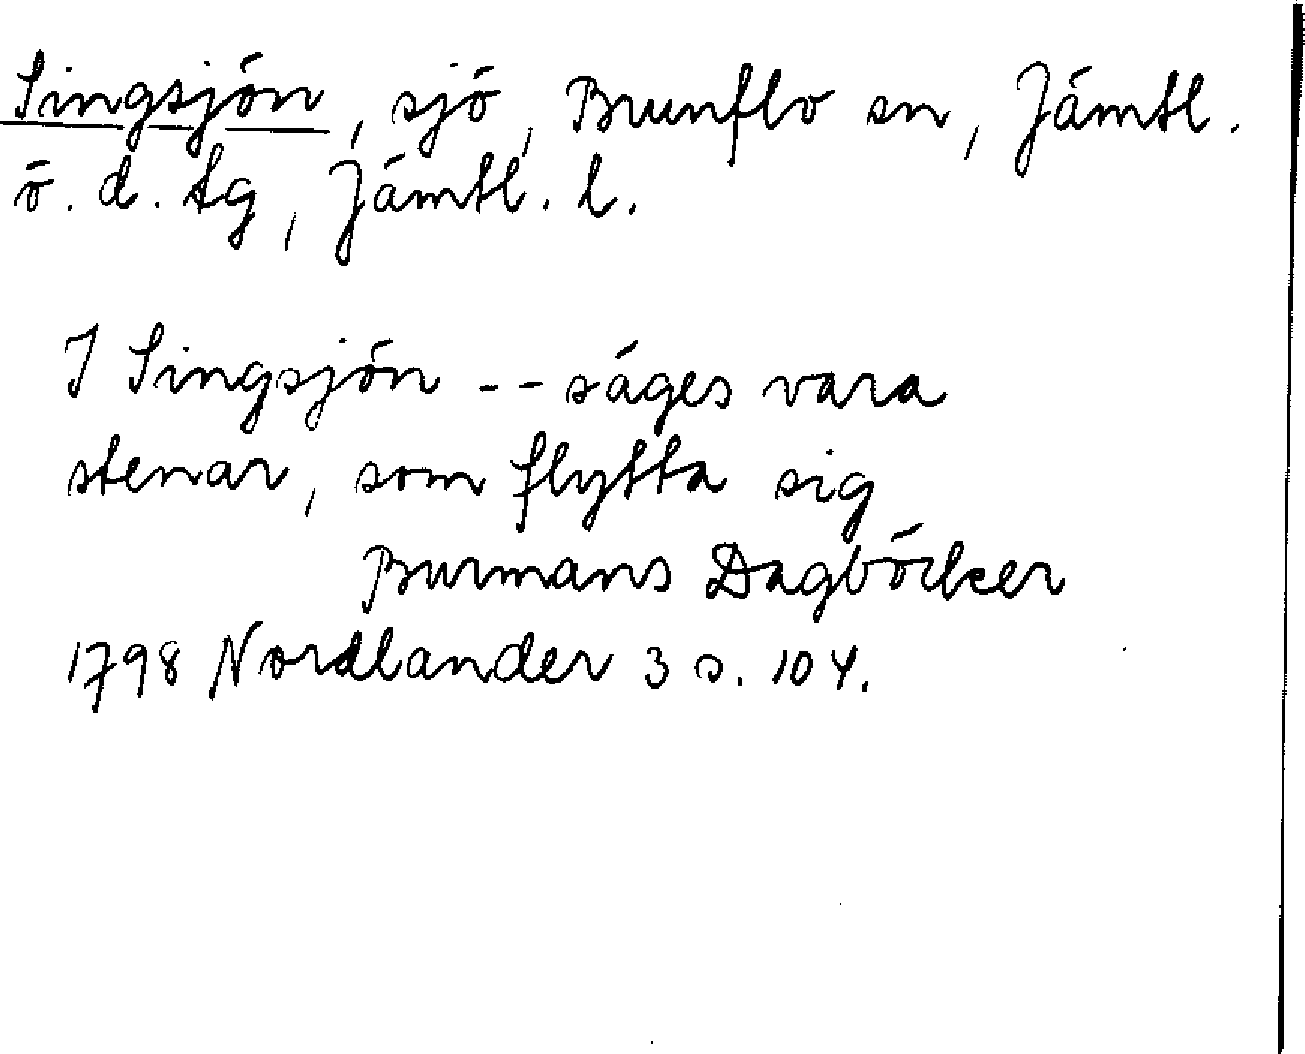 Singsjön, sjö, Brunflo sn, Jämtl.
ö. d. tg, Jämtl. l.
I Singsjön -- säges vara
stenar, som flytta sig
Burmans Dagböcker
1798 Nordlander 3 s. 104.